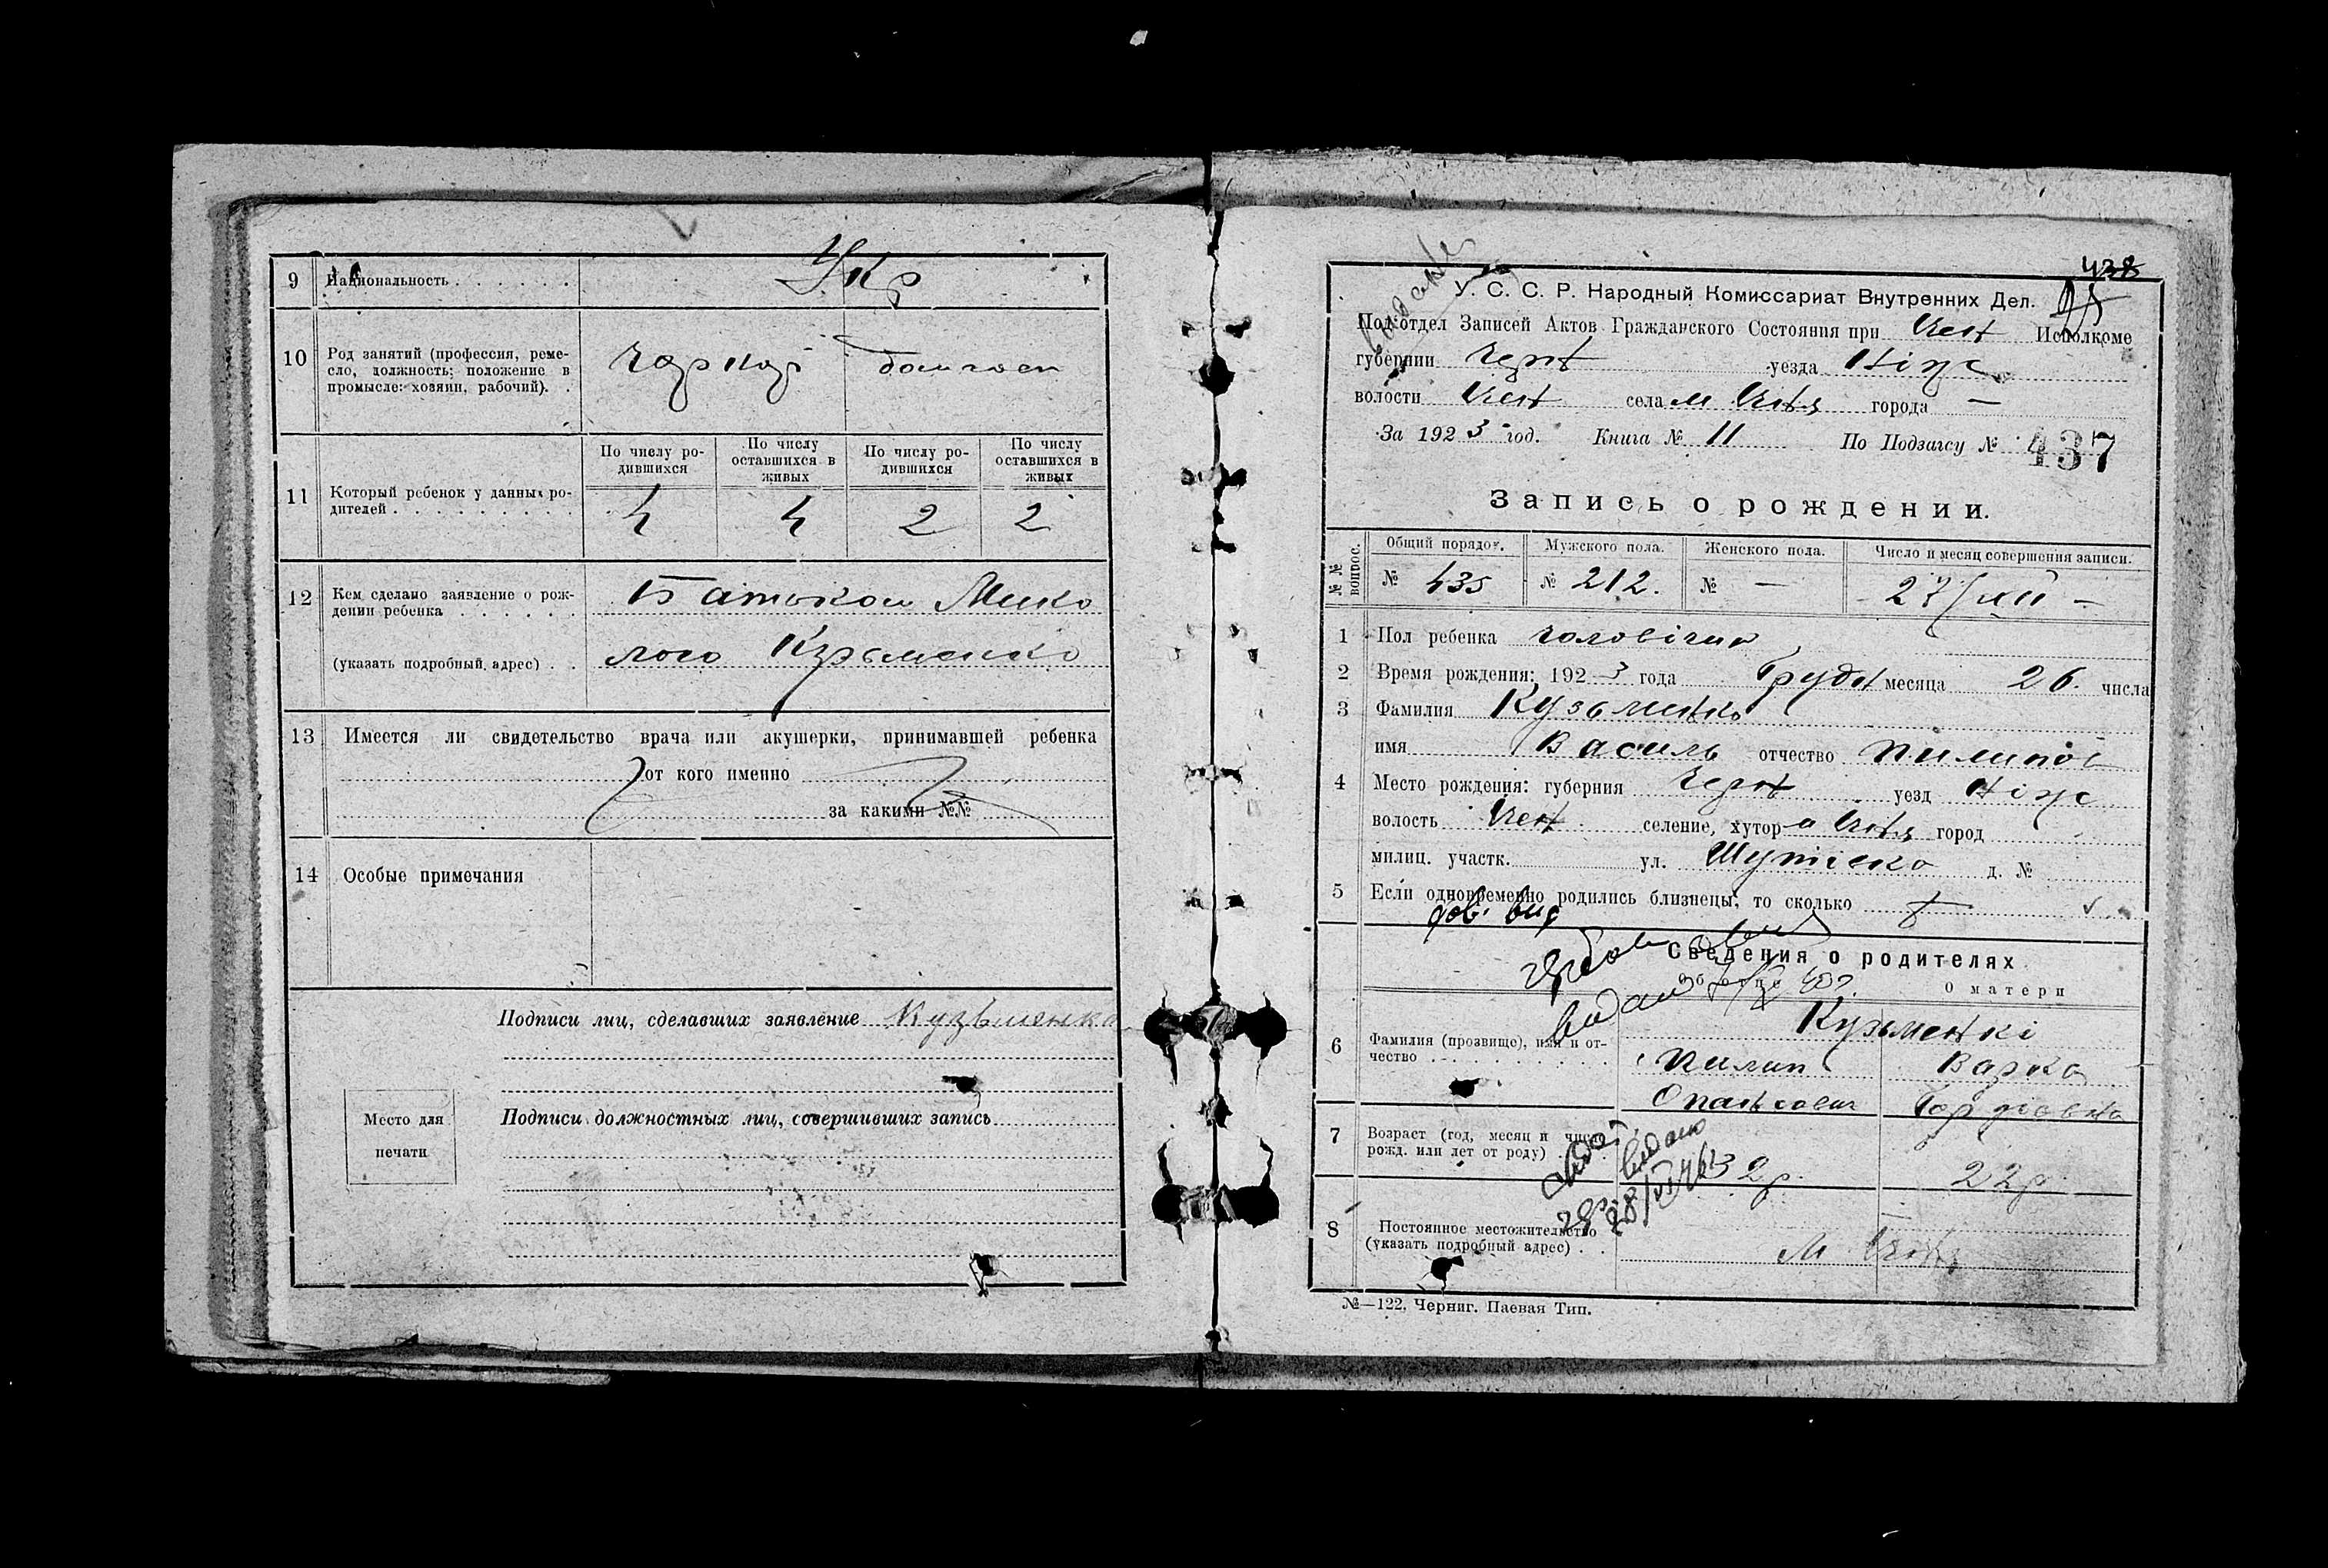 9 Национальность . . . . . . . Укр
10 Род занятий (профессия, реме-
сло, должность: положение в
промысле: хозяин, рабочий). .
По числу ро-
дившихся
По числу
оставшихся в
живых
По числу ро-
дившихся
По числу
оставшихся в
живых
11 Который ребенок у данных ро-
дителей . . . . . . . . . .
4 4 2 2
12 Кем сделано заявление о рож-
дении ребенка . . . . . . Батьком Мико
(указать подробный адрес) . . лою Кузьменко
13 Имеется ли свидетельство врача или акушерки, принимавшей ребенка
от кого именно
за какими №№
14 Особые примечания
Подписи лиц, сделавших заявление Кузьменко
Место для
печати
Подписи должностных лиц, совершивших запись
438
У. С. С. Р. Народный Комиссариат Внутренних Дел.
Под'отдел Записей Актов Гражданского Состояния при Ичен Исполкоме
губернии Черн уезда Ніж
волости Ичен села м Ичня города —
За 1923 год. Книга № 11 По Подзагсу № 437
Запись о рождении.
№№ вопрос.
Общий порядок. Мужского пола. Женского пола. Число и месяц совершения записи.
№ 435 № 212. № — 27/XII —
1 Пол ребенка чоловіча
2 Время рождения: 1923 года Грудн месяца 26. числа
3 Фамилия Кузьменко
имя Василь отчество Пилипов
4 Место рождения: губерния Черн уезд Ніж
волость Ичен селение, хутор м Ичня город
милиц. участк. ул. д. №
5 Если одновременно родились близнецы, то сколько
Сведения о родителях
О матери
6 Фамилия (прозвище), имя и от-
чество . . . . . . . .
Кузьменкі
Пилип Варка
Опанасович Гордіовна
7 Возраст (год, месяц и число
рожд. или лет от роду) 32р. 22р
8 Постоянное местожительство
(указать подробный адрес) . . М Ичня
№—122. Черниг. Паевая Тип.